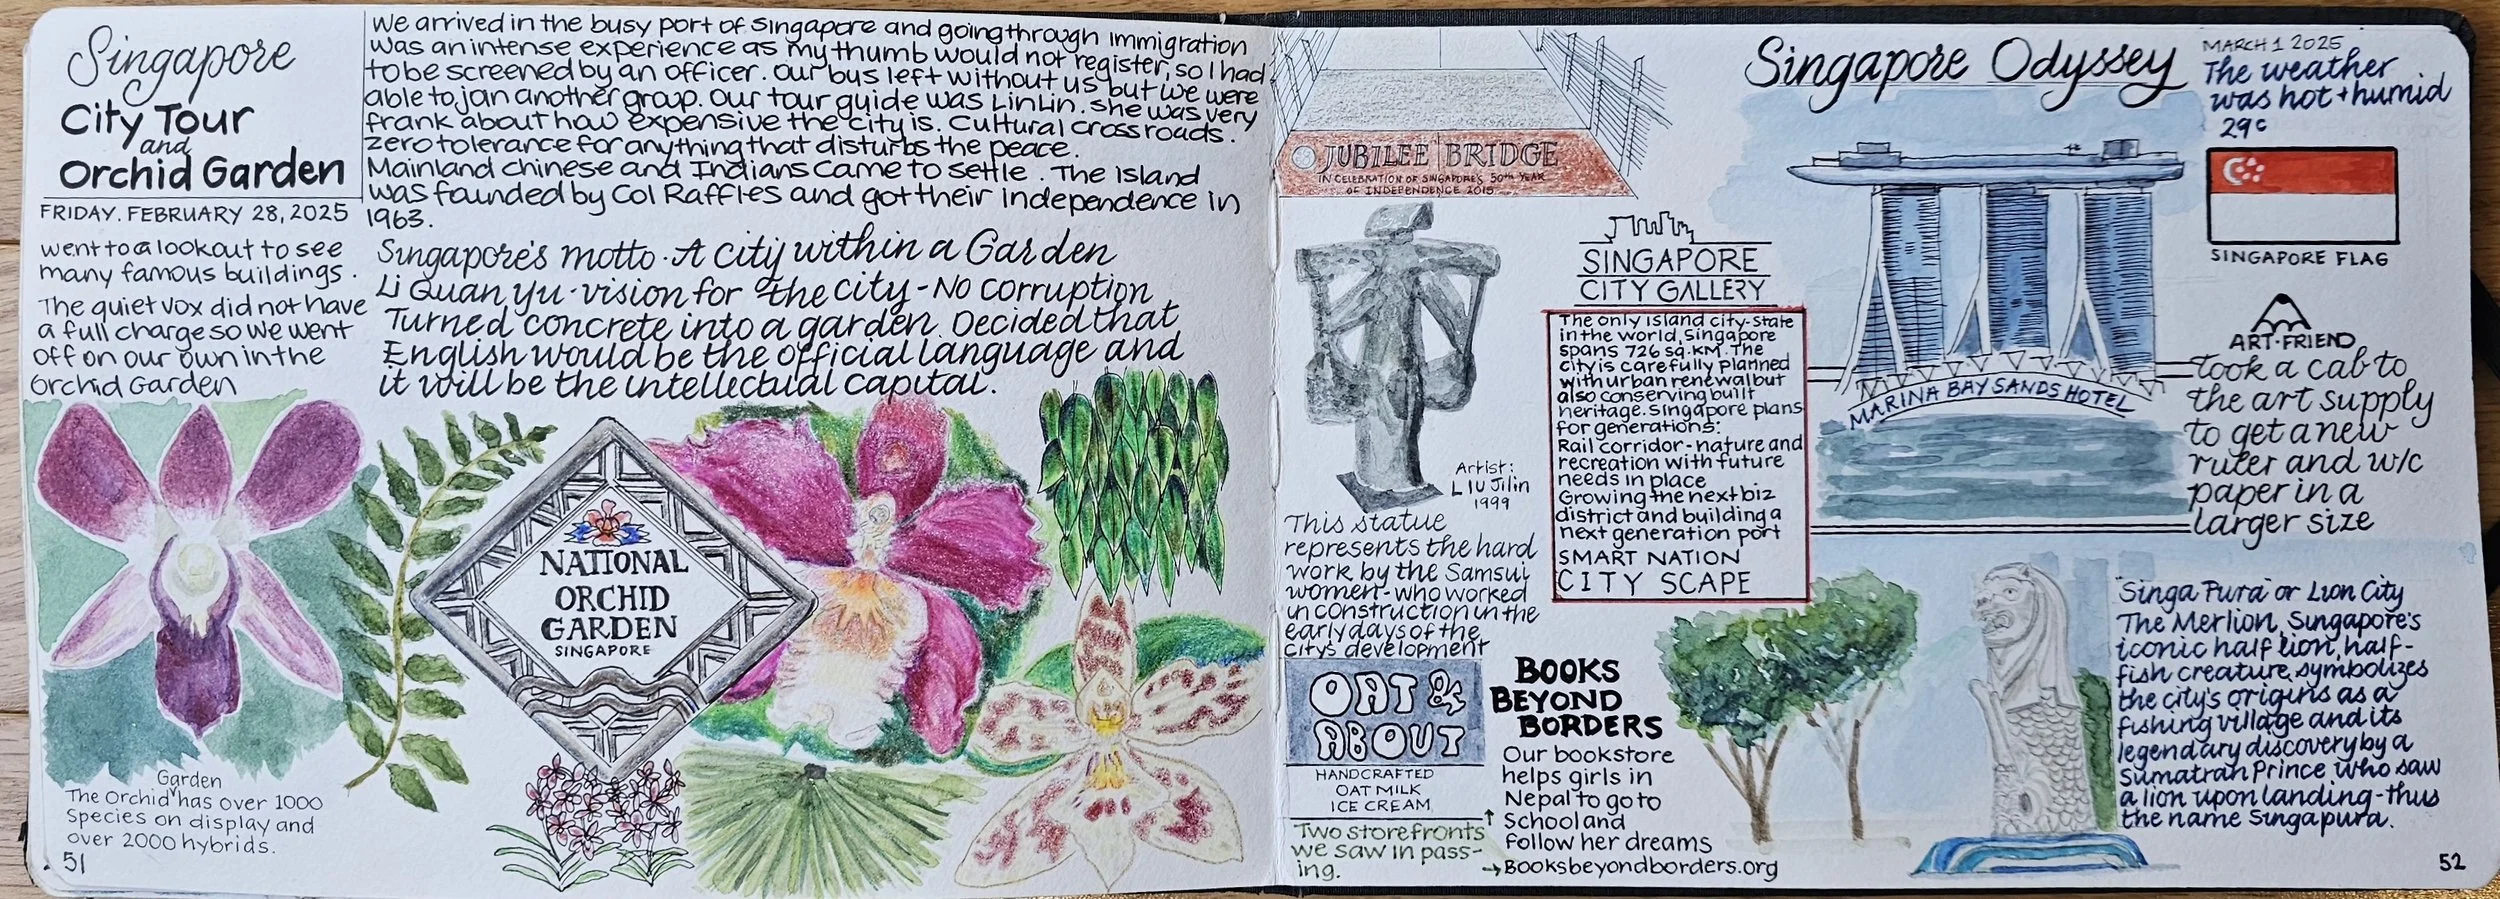 Singapore
City Tour
and
Orchid Garden
FRIDAY. FEBRUARY 28, 2025
We arrived in the busy port of Singapore and going through immigration
was an intense experience as my thumb would not register, so I had
to be screened by an officer. Our bus left without us but we were
able to join another group. Our tour guide was LinLin. She was very
frank about how expensive the city is. Cultural crossroads.
Zero tolerance for anything that disturbs the peace.
Mainland Chinese and Indians came to settle. The Island
was founded by Col Raffles and got their independence in
1963.
went to a lookout to see
many famous buildings.
The quiet vox did not have
a full charge so we went
off on our own in the
Orchid Garden
Singapore's motto · A city within a Garden
Li Quan Yu · vision for the city - No corruption
Turned concrete into a garden. Decided that
English would be the official language and
it will be the intellectual capital.
NATIONAL
ORCHID
GARDEN
SINGAPORE
Garden
The Orchid ˅ has over 1000
Species on display and
over 2000 hybrids.
51
JUBILEE BRIDGE
IN CELEBRATION OF SINGAPORE'S 50TH YEAR
OF INDEPENDENCE 2015
Artist:
LIU Jilin
1999
This statue
represents the hard
work by the Samsui
women - who worked
in construction in the
early days of the
city's development
OAT &
ABOUT
HANDCRAFTED
OAT MILK
ICE CREAM
Two storefronts
we saw in pass-
ing.
SINGAPORE
CITY GALLERY
The only island city-state
in the world, Singapore
spans 726 sq. KM. The
city is carefully planned
with urban renewal but
also conserving built
heritage. Singapore plans
for generations:
Rail corridor - nature and
recreation with future
needs in place
Growing the next biz
district and building a
next generation port
SMART NATION
CITY SCAPE
BOOKS
BEYOND
BORDERS
Our bookstore
helps girls in
Nepal to go to
School and
follow her dreams
→Booksbeyondborders.org
Singapore Odyssey
MARCH 1 2025
The weather
was hot + humid
29c
SINGAPORE FLAG
MARINA BAY SANDS HOTEL
ART·FRIEND
Took a cab to
the art supply
to get a new
ruler and w/c
paper in a
larger size
"Singa Pura" or Lion City
The Merlion, Singapore's
iconic half lion, half-
fish creature, symbolizes
the city's origins as a
fishing village and its
legendary discovery by a
Sumatran Prince who saw
a lion upon landing - thus
the name Singapura.
52